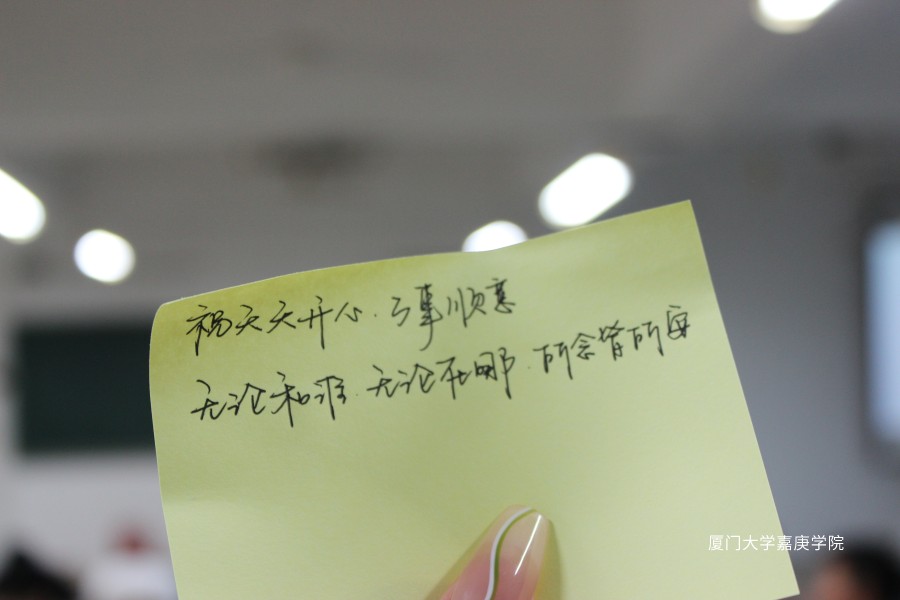 祝天天开心.万事顺意
无论和谁.无论在哪.所念皆所安
厦门大学嘉庚学院